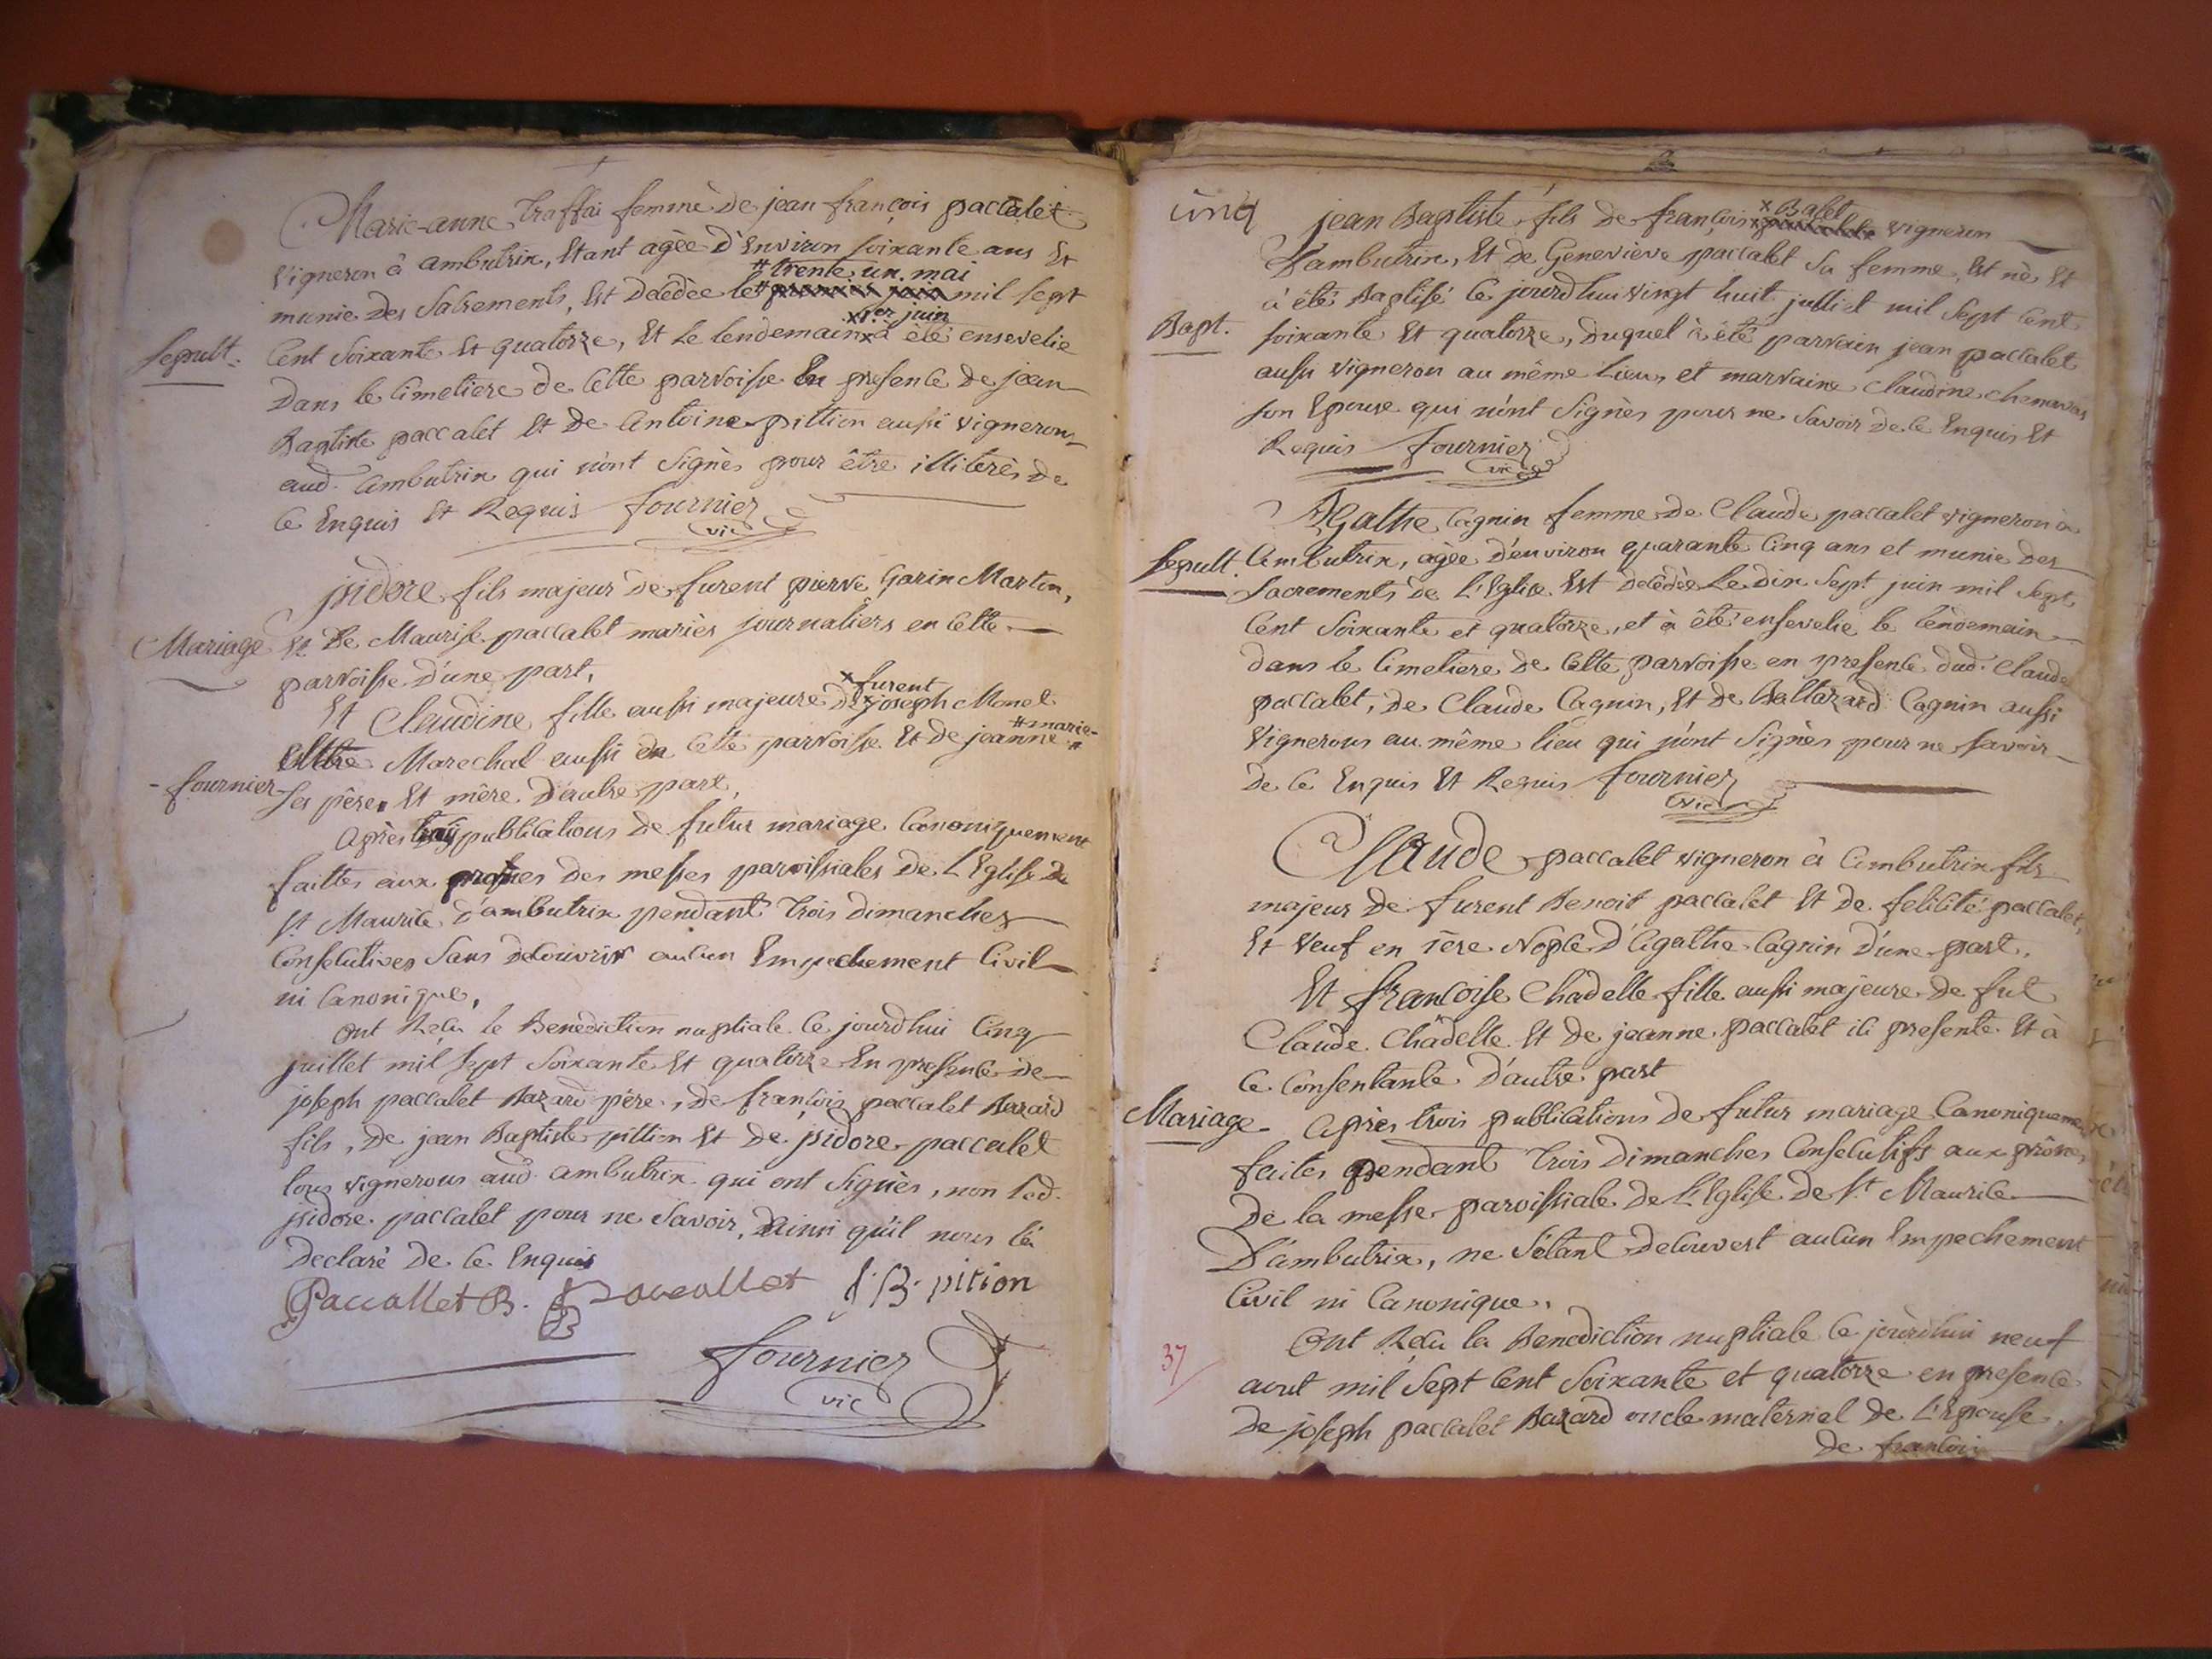 Marie-anne traffai femme de jean françois paccalet
vigneron à ambutrix, Etant agèe d'Environ soixante ans Et
# trente un. mai
munie des Sacrements, Est decèdèe le # mil sept
x 1er juin
Sepult. Cent Soixante Et quatorze, Et le lendemain x à èté ensevelie
Dans le Cimetiere de Cette parroisse En presence de jean
Baptiste paccalet Et de Antoine pittion aussi vignerons
aud. ambutrix qui n'ont Signès pour être illiterès de
Ce Enquis Et Requis fournier
vic
jsidore fils majeur de furent pierre Garin Martin,
Mariage Et De Maurise paccalet mariès journaliers en Cette
parroisse d'une part,
x furent
Et Claudine fille aussi majeure de x joseph Monet
# marie-
Maître Marechal aussi de Cette parroisse Et de jeanne #
- fournier Ses père Et mère D'autre part,
Après trois publications de futur mariage Canoniquement
faittes aux prônes des messes paroissiales de L'Eglise de
St Maurice d'ambutrix pendant trois dimanches
Consecutives Sans decouvrir aucun Empechement Civil
ni Canonique,
Ont Reçu le Benediction nuptiale Ce jourd'hui Cinq
juillet mil sept Soixante Et quatorze En presence de
joseph paccalet Bazard père, de françois paccalet Bazard
fils, de jean Baptiste pittion Et de jsidore paccalet
tous vignerons aud. ambutrix qui ont Signès, non led.
jsidore paccalet pour ne Savoir, Dainsi qu'il nous l'à
Declarè De Ce Enquis
Paccallet B. paccallet J. B. pition
fournier
vic
cinq
x Balet
jean Baptiste fils de françois x vigneron
D'ambutrix, Et de Geneviève paccalet Sa femme, Est nè Et
à été Baptisé Ce jourd'hui vingt huit julliet mil Sept Cent
Bapt. soixante Et quatorze, duquel à été parrain jean paccalet
aussi vigneron au même Lieu, et marraine Claudine chenavas
son Epouse qui n'ont Signès pour ne Savoir de Ce Enquis Et
Requis fournier
vic
Agathe Cagnin femme de Claude paccalet vigneron à
Sepult. Ambutrix, agèe d'environ quarante Cinq ans et munie des
Sacrements de L'Eglise Est decèdèe Le dix Sept juin mil Sept
Cent Soixante et quatorze, et à été ensevelie le lendemain
dans le Cimetiere de Cette parroisse en presence dud. Claude
paccalet, de Claude Cagnin, Et de Baltazard Cagnin aussi
Vignerons au même lieu qui n'ont Signès pour ne Savoir
de Ce Enquis Et Requis fournier
vic
Claude paccalet vigneron à Ambutrix fils
majeur de furent Benoit paccalet Et de felicité paccalet,
Et Veuf en 1ère Nopce d'Agathe Cagnin d'une part.
Et françoise Chadelle fille aussi majeure de fut
Claude Chadelle Et de jeanne paccalet ici presente Et à
Ce Consentante D'autre part
Mariage Après trois publications de futur mariage Canoniquement
faites pendant trois Dimanches Consecutifs aux prônes
De la messe paroissiale de L'Eglise de St Maurice
D'ambutrix, ne S'étant decouvert aucun Empechement
Civil ni Canonique.
Ont Reçu la Benediction nuptiale Ce jourd'hui neuf
37 aout mil Sept Cent Soixante et quatorze en presence
De joseph paccalet Bazard oncle maternel de L'Epouse,
De françois